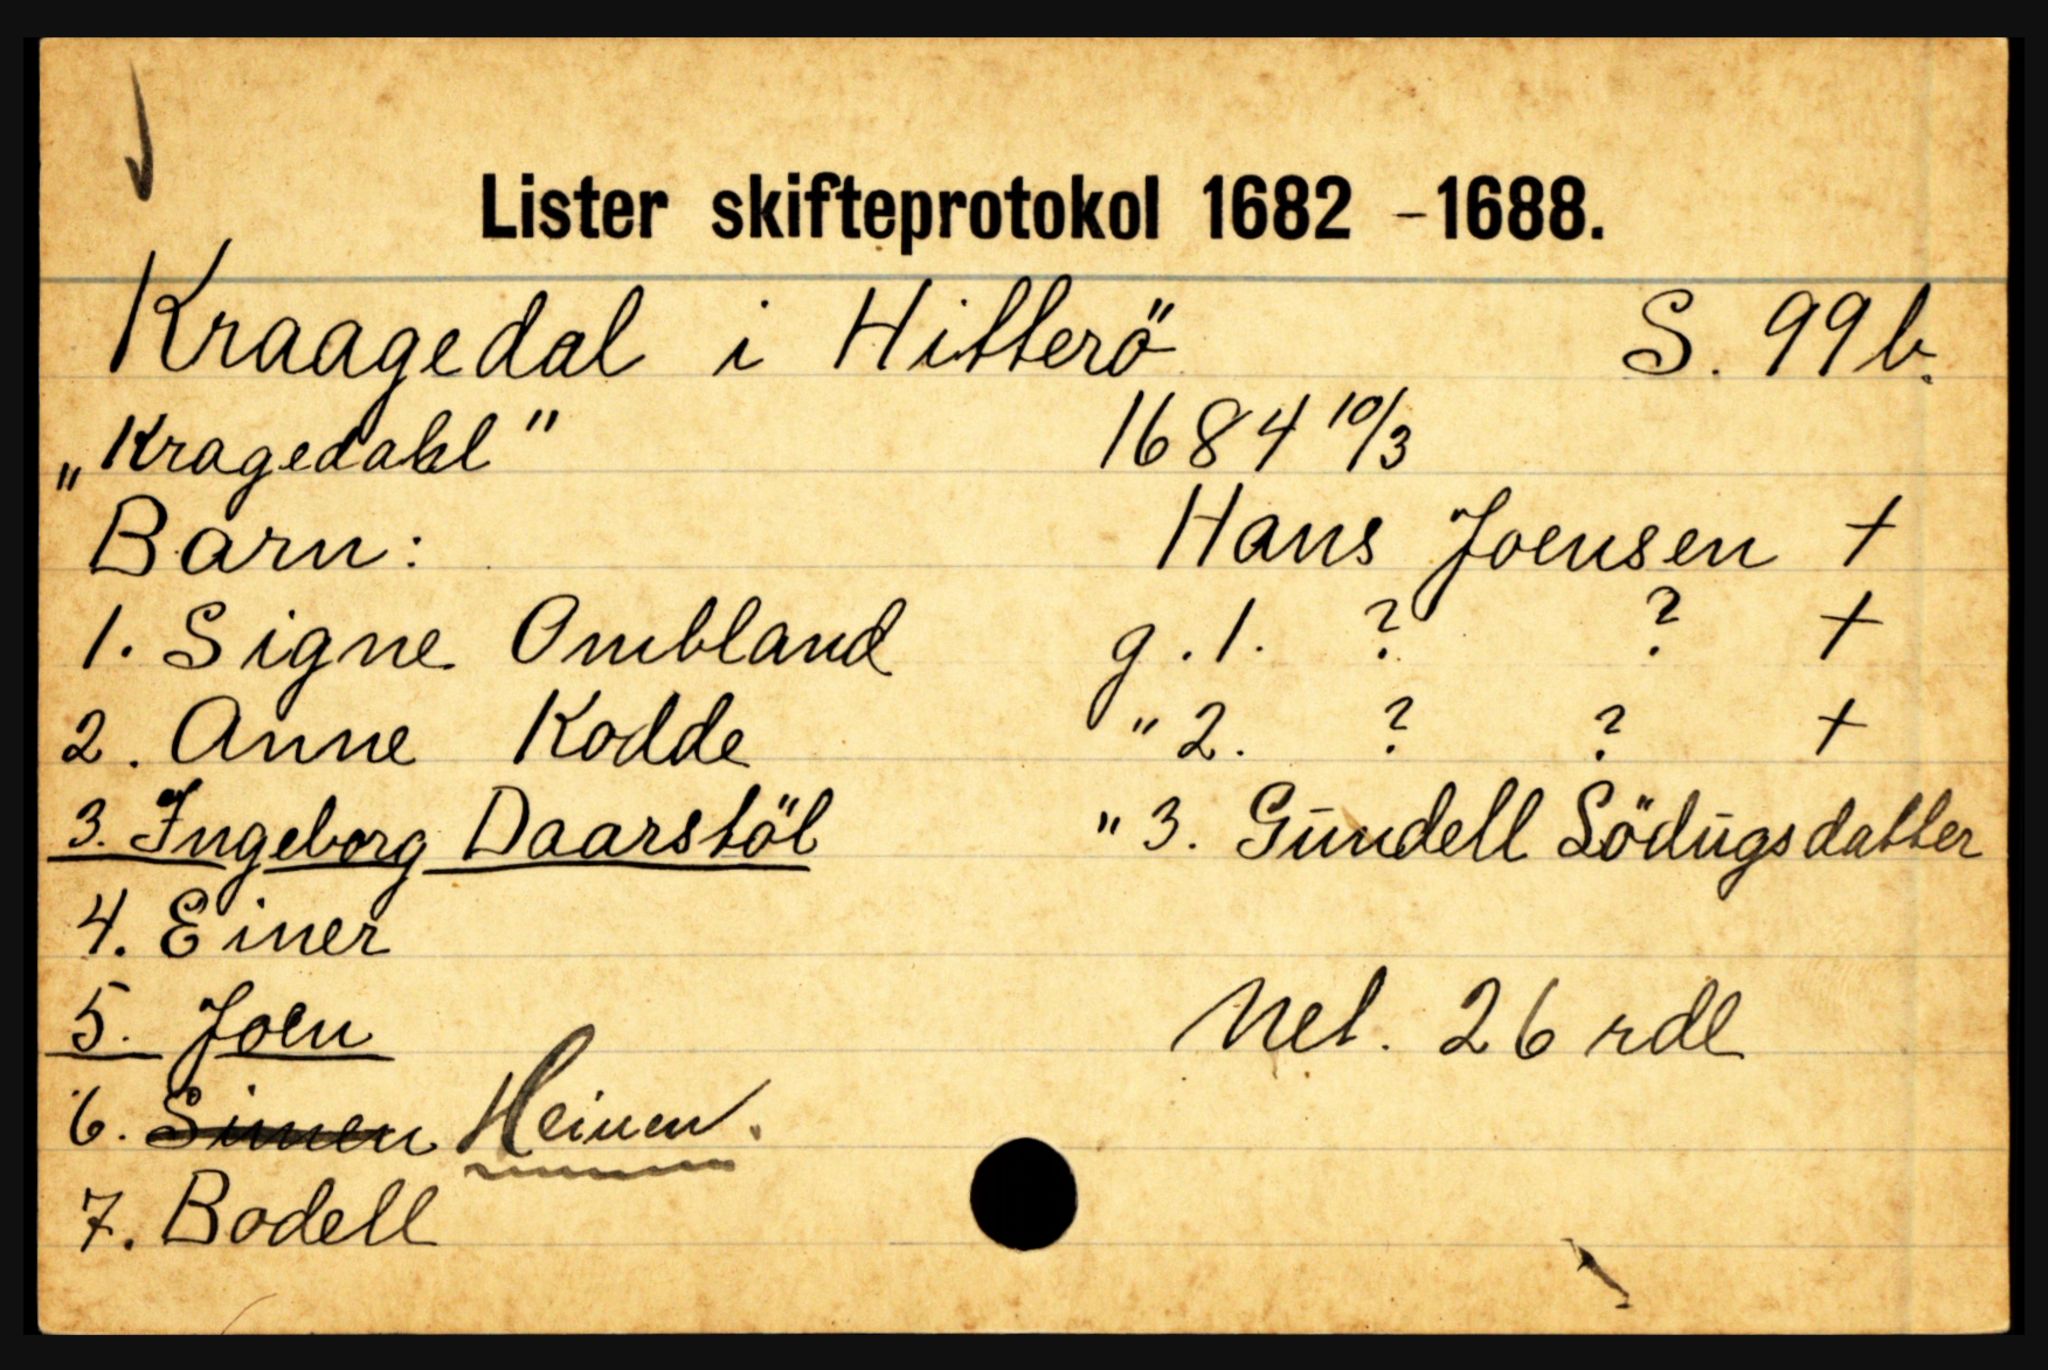 Lister skifteprotokol 1682 - 1688.
Kraagedal i Hitterö S. 99 b.
„Kragedahl" 1684 10/3
Barn: Hans Joensen +
1. Signe Ombland g. 1. ? ? +
2. Anne Kodde " 2. ? ? +
3. Ingeborg Daarstöl " 3. Gundell Södugsdatter
4. Einer
5. Joen Net. 26 rdl
6. Simen Heinen.
7. Bodell